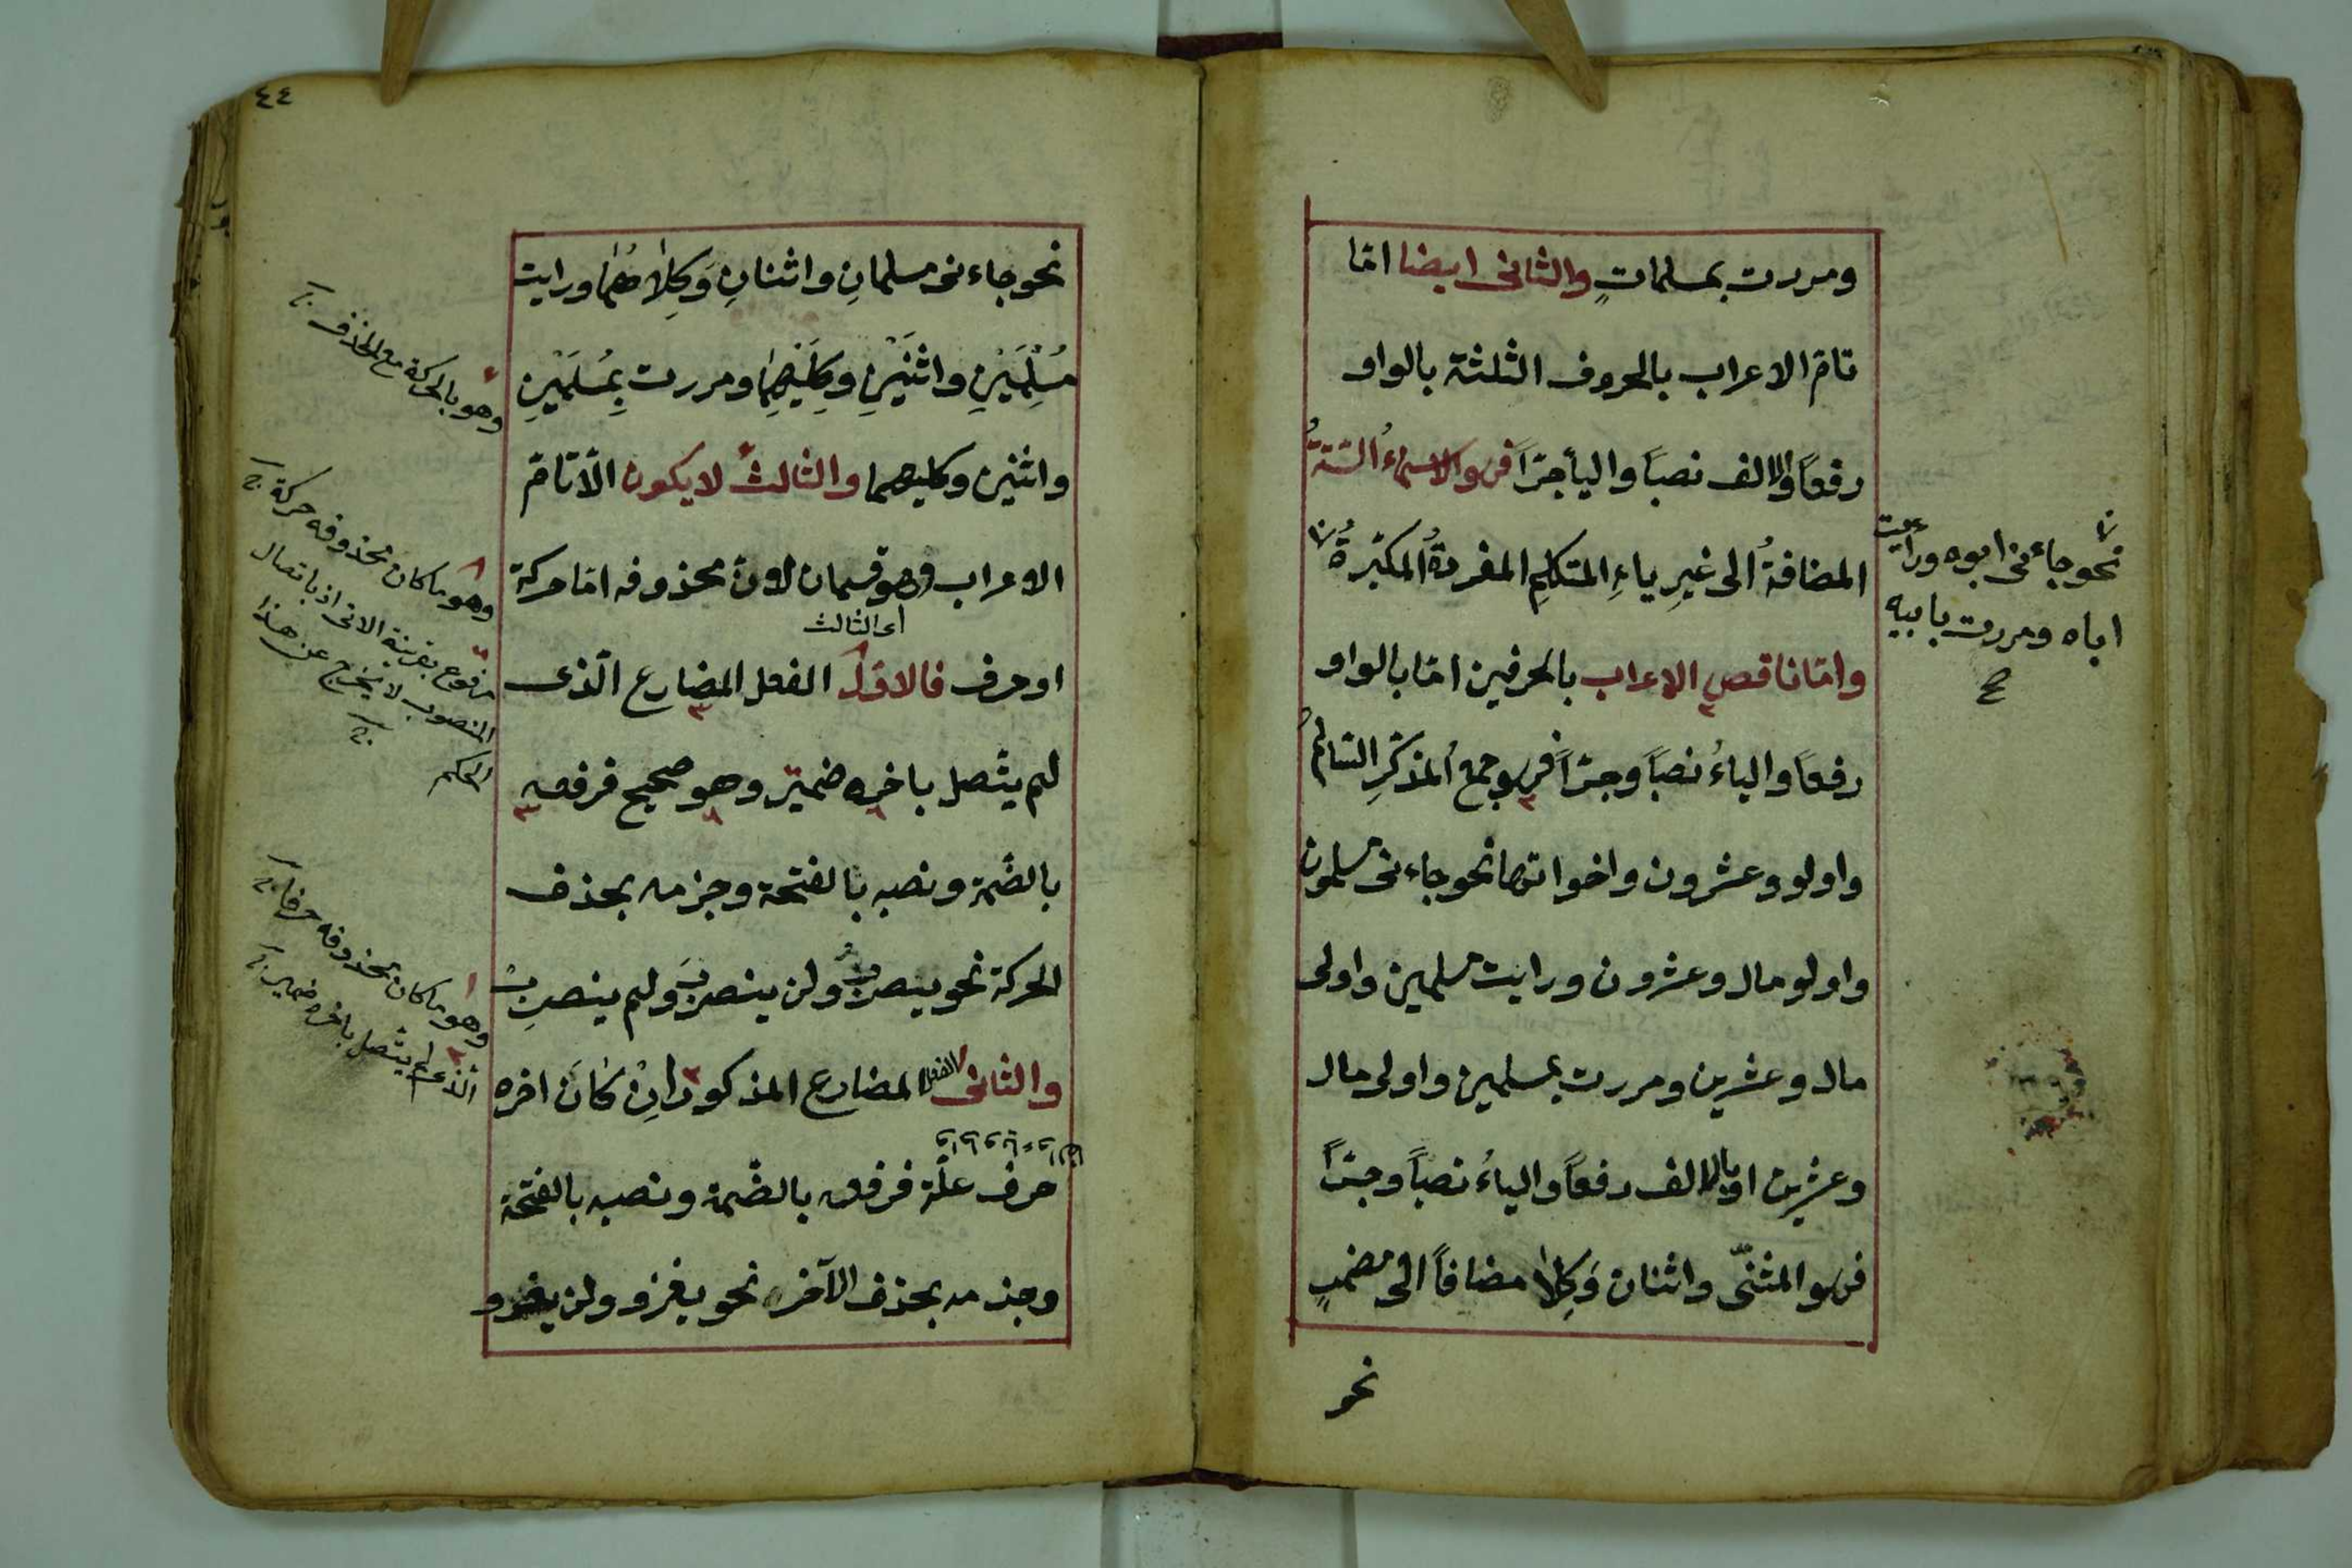 ومررت بمسلمات والثانى ايضا امّا
تامّ الاعراب بالحروف الثلثة بالواو
رفعاً والالف نصباً واليأ جرّاً فهو الاسماءُ السّتةُ
المضافةُ الى غيرِ ياءِ المتكلمِ المفردةُ المكبّرةُ
نحو جاءنى ابوه ورايت
اباه ومررت بابيه
صح
وامّا ناقص الاعراب بالحرفين امّا بالواو
رفعاً والياءُ نصباً وجرّاً فهو جمع المذكّرِ السّالمُ
واولو وعشرون واخواتها نحو جاءنى مسلمون
واولو مال وعشرون ورايت مسلمين واولى
مال وعشرين ومررت بمسلمين واولى مال
وعشرين او بالالف رفعاً والياءُ نصباً وجرّاً
فهو المثنّى واثنان وَكِلا مضافاً الى مضمرٍ
نحو
٤٤
نحو جاءنى مسلمانِ واثنانِ وَكِلاهُما ورايت
مُسْلِمَيْنِ واثنَيْنِ وكِلَيْهِمَا ومررت بِمُسْلِمَيْنِ
واثنين وكليهما والثالث لا يكون الّا تامّ
الاعراب وهو قسمان لان محذوفه امّا حركة
اى الثالث
او حرف فالاوّل الفعل المضارع الّذى
لم يتّصل باخره ضمير وهو صحيح فرفعه
بالضّمة ونصبه بالفتحة وجزمه بحذف
الحركة نحو ينصربُ ولن ينصربَ ولم ينصرب
والثانى الفعل المضارع المذكور اِنْ كانَ اخره
حرف علّة فرفعه بالضّمة ونصبه بالفتحة
وجزمه بحذف الآخر نحو يغزو ولن يغزو
وهو بالحركة مع الحذف
وهو ما كان محذوفه حركة
مرفوع بقرينة الاتى اذ باتصال
المنصوب لا يخرج عن هذا
الحكم
وهو ما كان محذوفه حرفا
الّذى لم يتّصل باخره ضمير